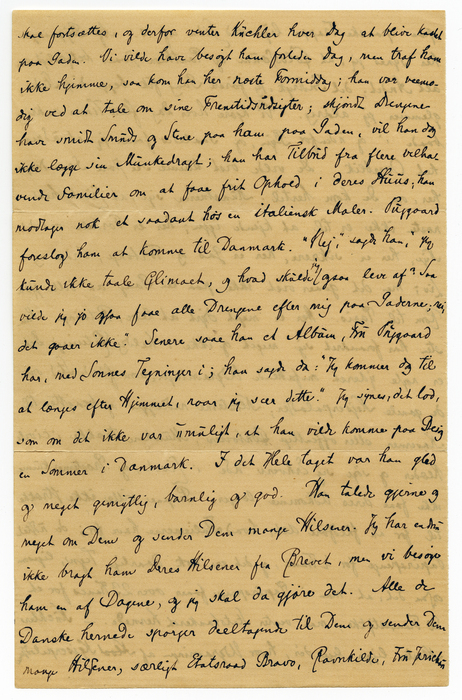 skal fortsættes, og derfor venter Küchler hver Dag at blive kastet
paa Gaden. Vi vilde have besøgt ham forleden Dag, men traf ham
ikke hjemme, saa kom han her næste Formiddag; han var veemo-
dig ved at tale om sine Fremtidsudsigter; skjöndt Drengene
have smidt Smuds og Stene paa ham paa Gaden, vil han dog
ikke lægge sin Munkedragt; han har Tilbud fra flere velha-
vende Familier om at faae frit Ophold i deres Huus; han
modtager nok et saadant hos en italiensk Maler. Puggaard
foreslog ham at komme til Danmark. "Nej," sagde han, "jeg
kunde ikke taale Climaet, og hvad skulde jeg gaae leve af? Saa
vilde jeg jo ogsaa faae alle Drengene efter mig paa Gaderne; nej
det gaaer ikke". Senere saae han et Album, Fru Puggaard
har, med Sonnes Tegninger i; han sagde da: "Jeg kommer dog til
at længes efter Hjemmet, naar jeg seer dette." Jeg synes, det lød,
som om det ikke var umuligt, at han vilde komme paa Besøg
en Sommer i Danmark. I det Hele taget var han glad
og meget gemytlig, barnlig og god. Han talede gjerne og
meget om Dem og sender Dem mange Hilsener. Jeg har endnu
ikke bragt ham Deres Hilsener fra Brevet, men vi besøge
ham en af Dagene, og jeg skal da gjøre det. Alle de
Danske hernede spørger deeltagende til Dem og sender Dem
mange Hilsener, særligt Etatsraad Bravo, Ravnkilde, Fru Jerichau